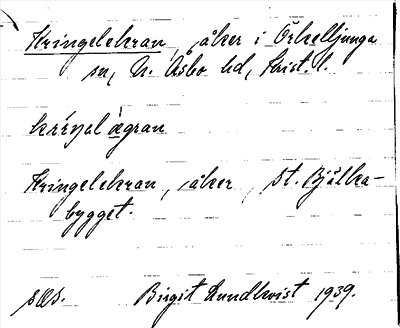 Kringelekran, åker i Örkelljunga
sn, N. Åsbo hd, Krist. l.
Kringelekran, åker, St. Bjälka-
bygget.
sös. Birgit Lundkvist 1939.